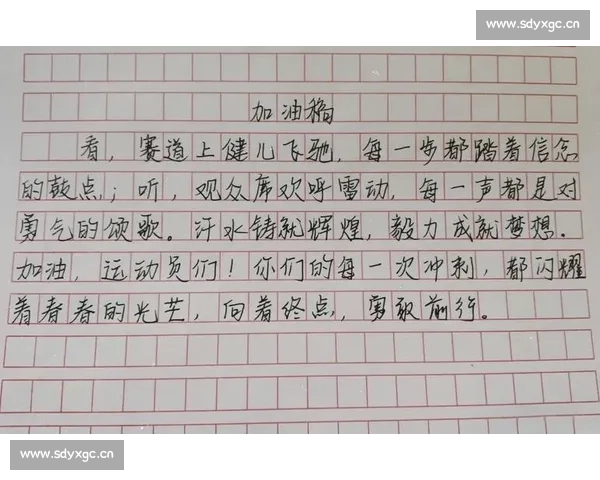 www.sdyxgc.cn
加油稿
看，赛道上健儿飞驰，每一步都踏着信念
的鼓点；听，观众席欢呼雷动，每一声都是对
勇气的颂歌。汗水铸就辉煌，毅力成就梦想。
加油，运动员们！你们的每一次冲刺，都闪耀
着青春的光芒，向着终点，勇敢前行。
www.sdyxgc.cn